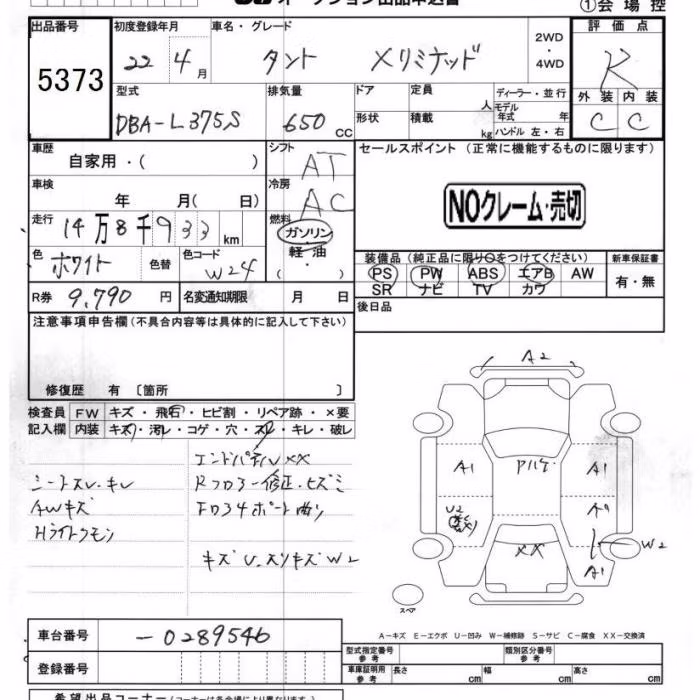 オークション出品申込書
①会場控
出品番号
5373
初度登録年月
22 4月
車名・グレード
タント
Xリミテッド
2WD
・
4WD
評価点
R
外装 内装
C C
型式
DBA-L375S
排気量
650 CC
ドア
形状
定員
人
積載
kg
ディーラー・並行
モデル
年式 年
ハンドル 左・右
車歴
自家用・( )
シフト
AT
セールスポイント (正常に機能するものに限ります)
NOクレーム・売切
車検
年 月( 日)
冷房
AC
走行
14万8千933km
燃料
ガソリン
・軽油・
( )
色
ホワイト
色替
色コード
W24
装備品(純正品に限り○をつけてください)
PS PW ABS エアB AW
SR ナビ TV カワ
新車保証書
有・無
R券 9,790円
名変通知期限 月 日
後日品
注意事項申告欄(不具合内容等は具体的に記入して下さい)
修復歴 有 〔箇所 〕
検査員 FW キズ・飛石・ヒビ割・リペア跡・×要
記入欄 内装 キズ・汚レ・コゲ・穴・スレ・キレ・破レ
シートスレ・キレ
AWキズ
Hライトクモリ
エンドパネルXX
Rフロアー修正・ヒズミ
キズU.スリキズW2
A2
A1
A1
U2
XX
W2
A1
スペア
A-キズ E-エクボ U-凹み W-補修跡 S-サビ C-腐食 XX-交換済
車台番号
-0289546
登録番号
型式指定番号
参考
類別区分番号
参考
車庫証明用
参考
長さ cm
幅 cm
高さ cm
希望出品コーナー(コーナーは各会場により異なります)